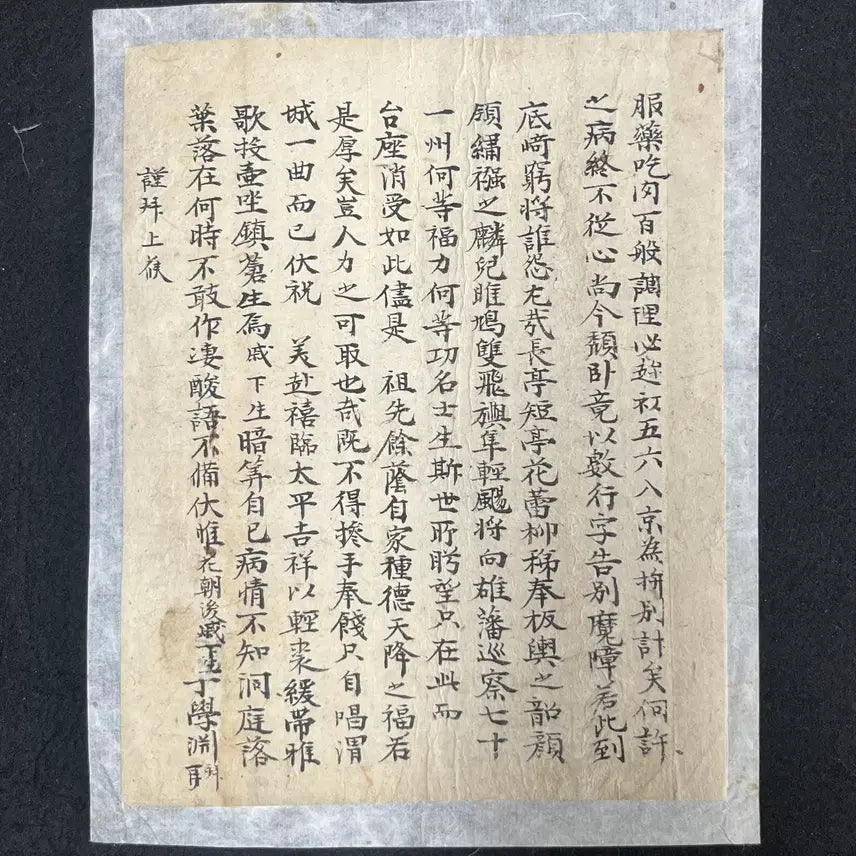 服藥吃肉百般調理必趁初五六入京為拚別計矣何許
之病終不從心尚今頹卧竟以數行字告別魔障若此到
底崎窮將誰怨尤哉長亭短亭花蕾柳稊奉板輿之韶顏
領繡襁之麟兒雎鳩雙飛輕颺將向雄藩巡察七十
一州何等福力何等功名士生斯世所睎望只在此而
台座消受如此儘是 祖先餘蔭自家種德天降之福若
是厚矣豈人力之可取也哉既不得摻手奉餞只自唱渭
城一曲而已伏祝 美赴禧臨太平吉祥以輕裘緩帶雅
歌投壺坐鎮蒼生焉戚下生暗筭自己病情不知洞庭落
葉落在何時不敢作凄酸語不備伏惟 花朝後戚下生丁學淵拜
謹拜上候